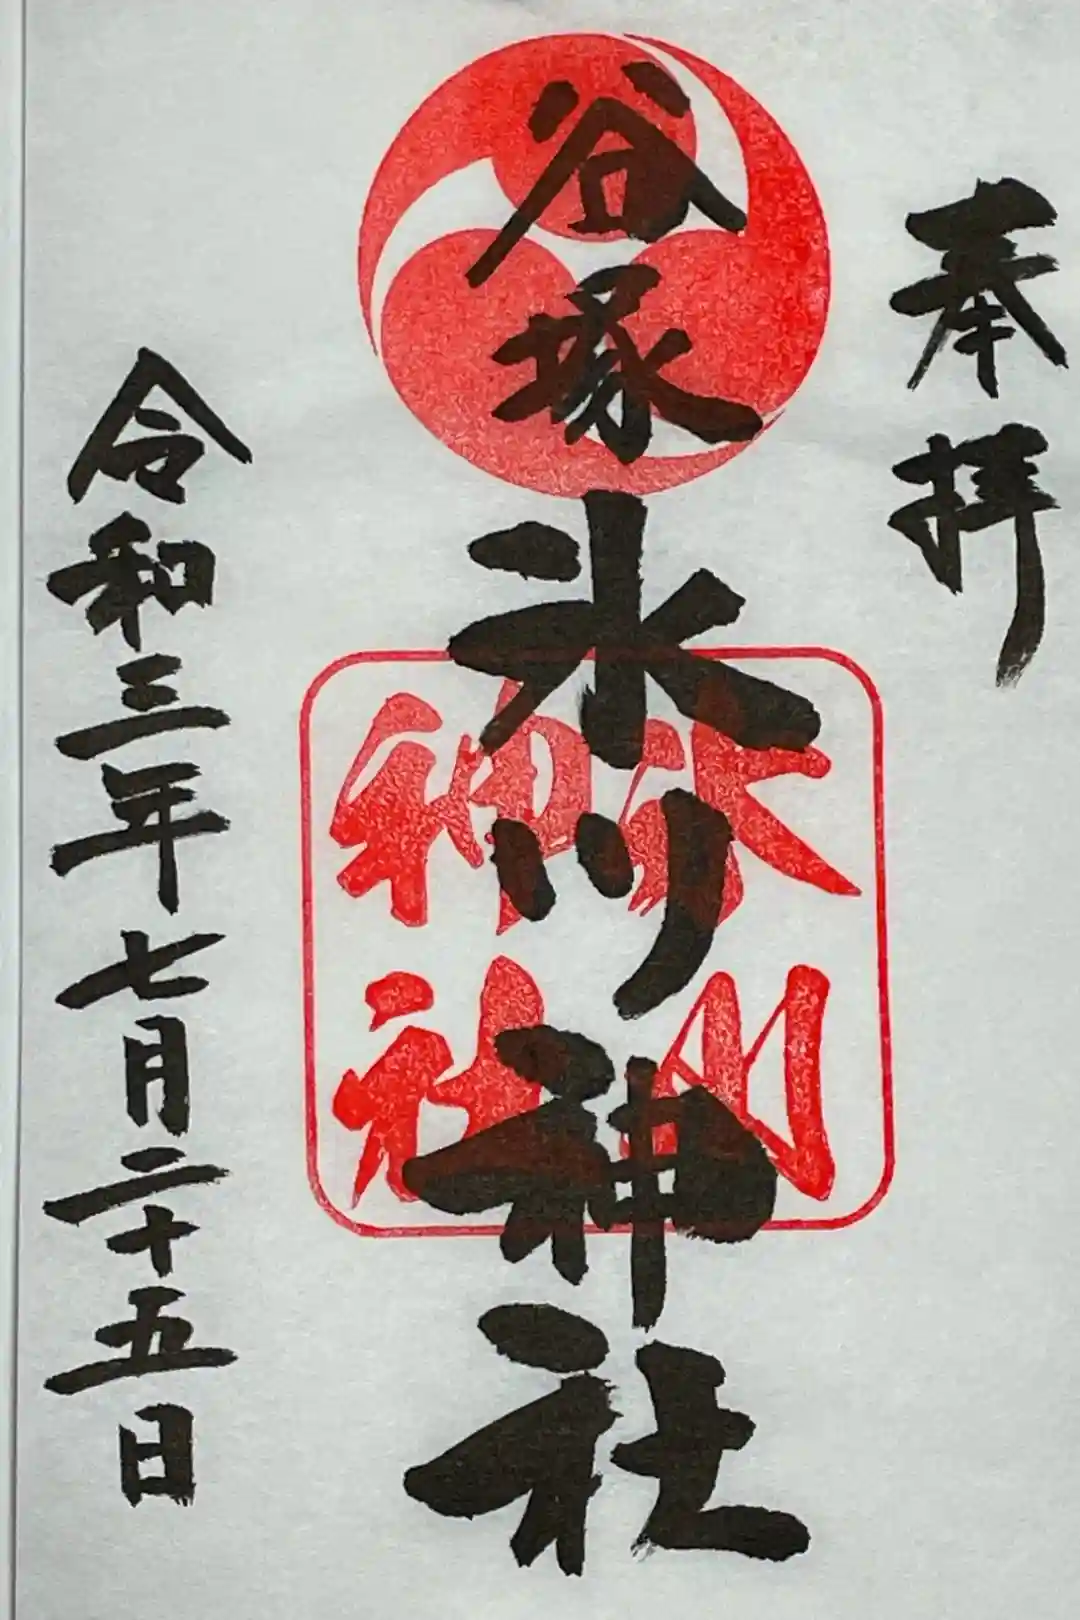 奉拝
谷塚氷川神社
氷川
神社
令和三年七月二十五日